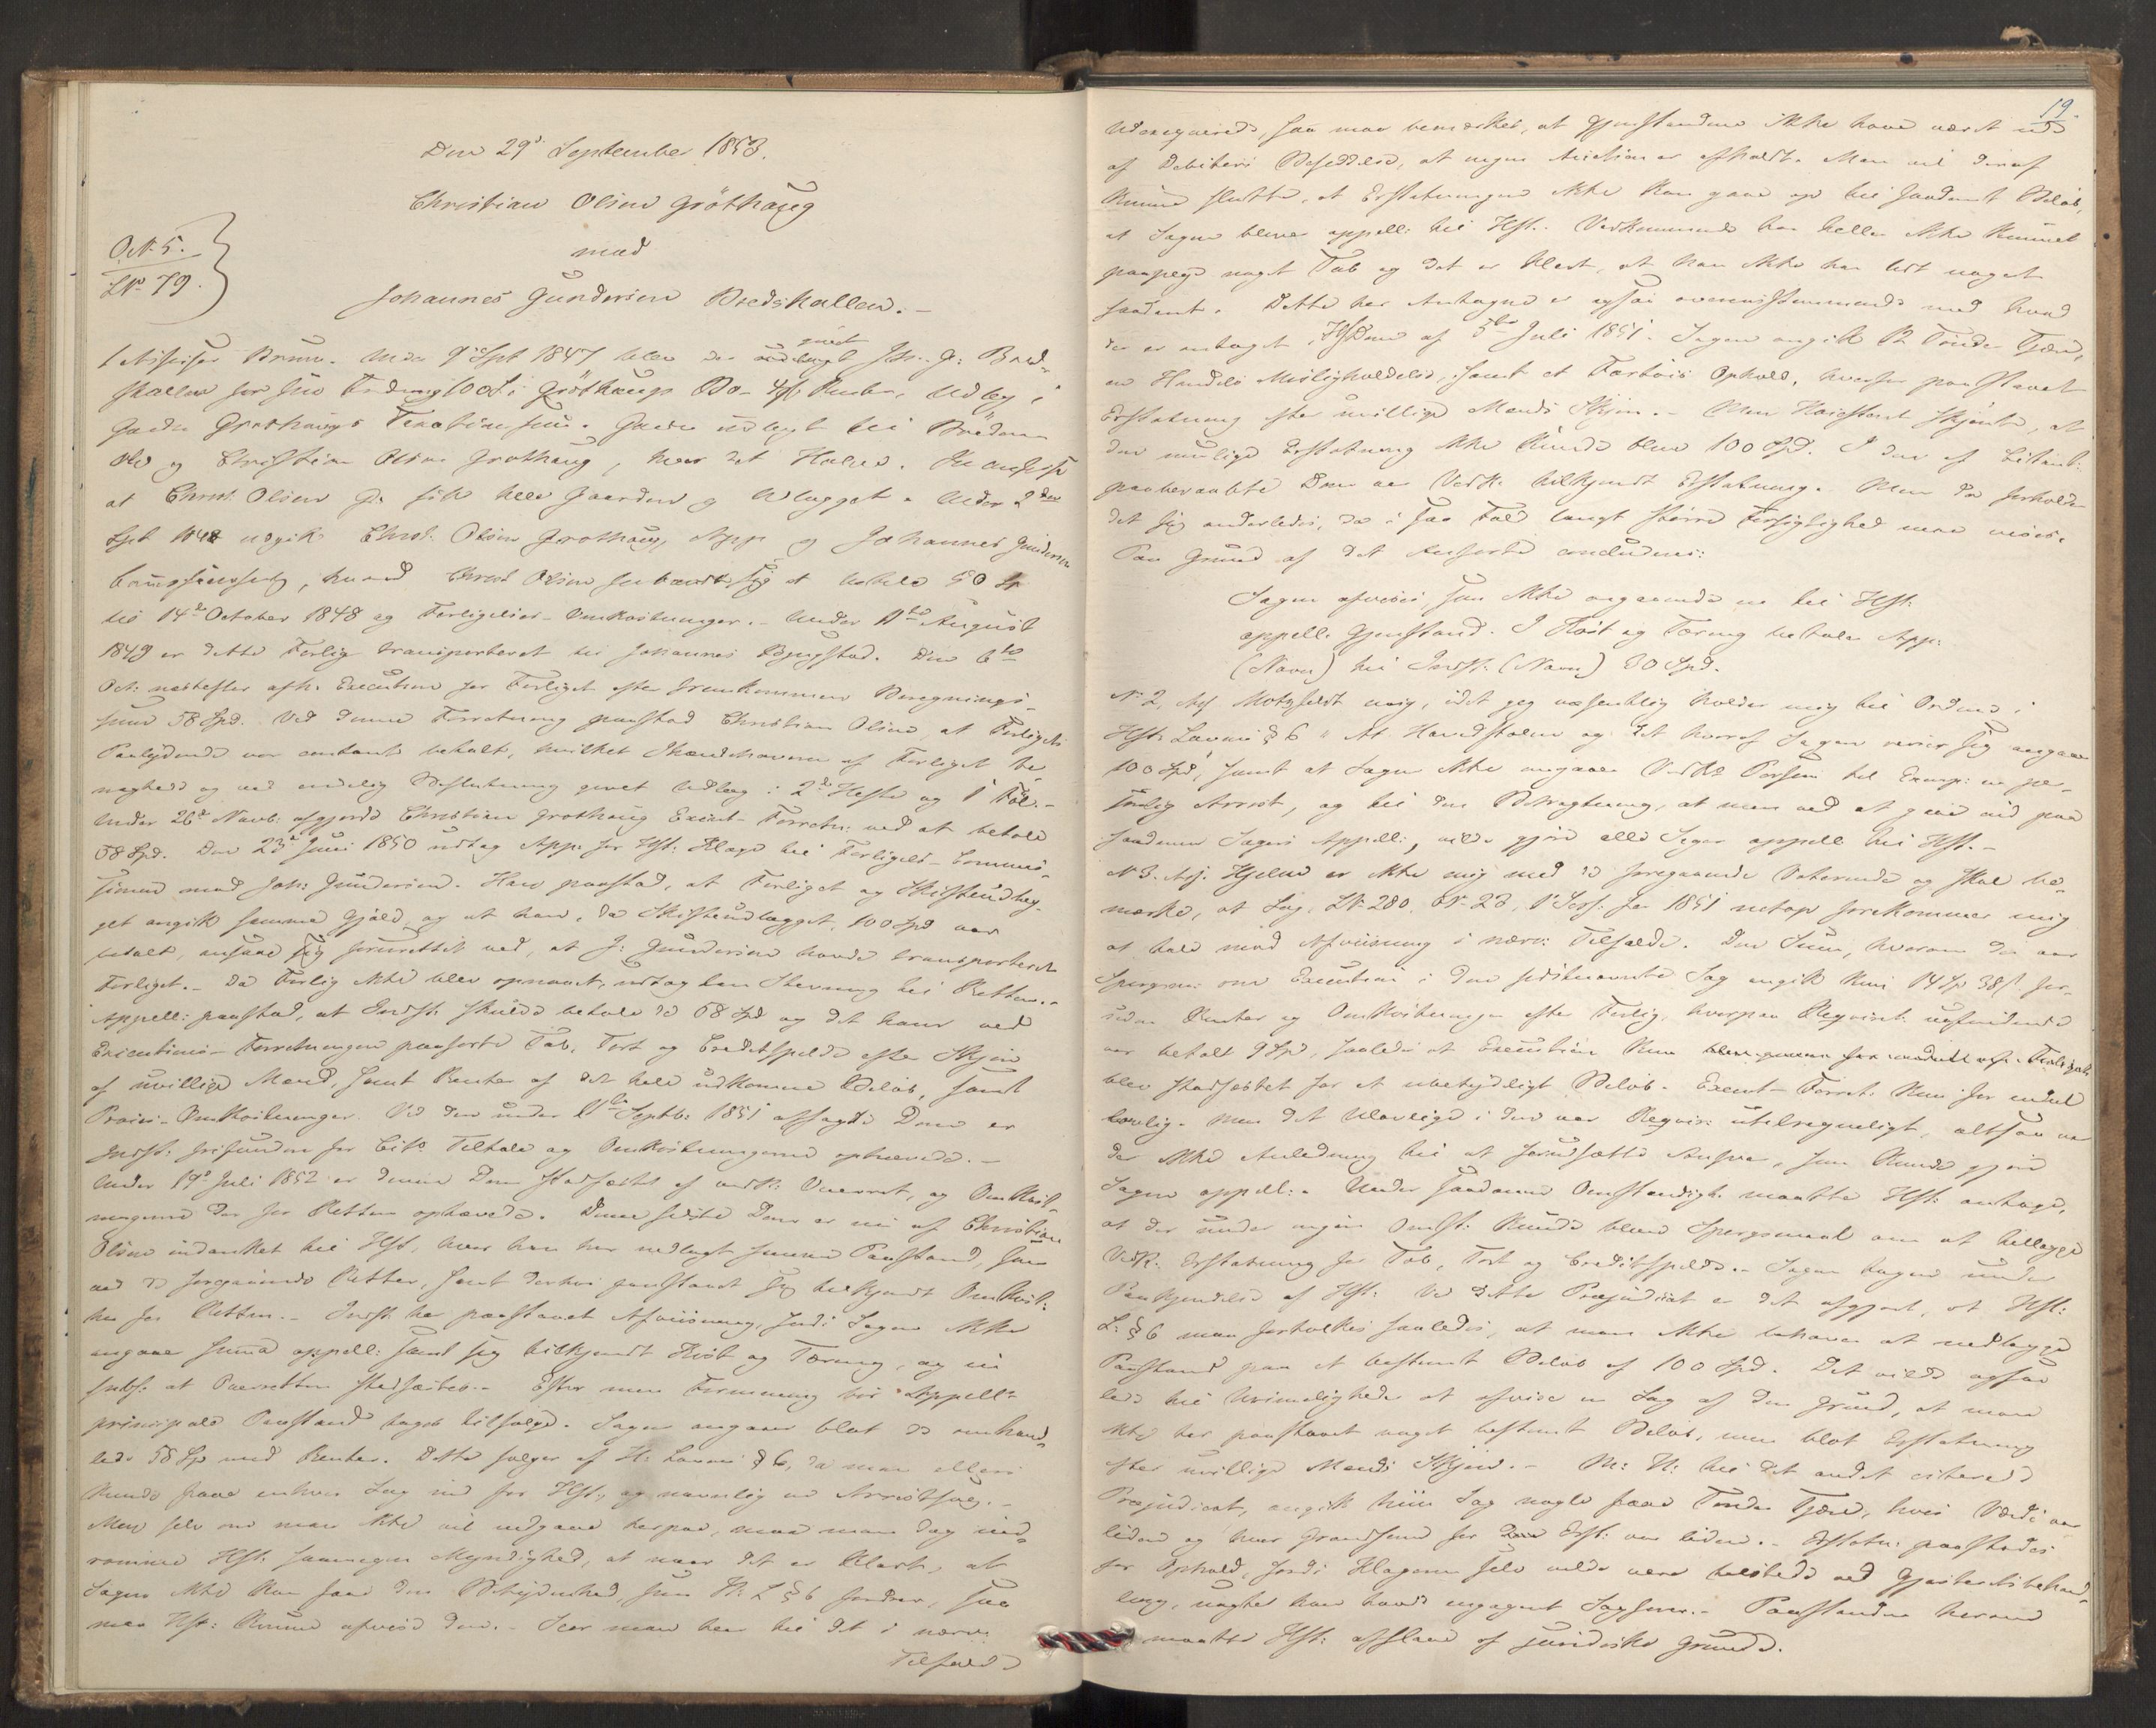 Den 29de September 1853.
Christian Olsen Gröthaug
mod
O.N. 5.
LN. 79.
Johannes Gundersen Bredskallen.-
1. Assessor Bruun. Under 9de Sept 1847 blev der givet Joh. G: Bred-
skallen for sin Fordring 100 Sp i Gröthaugs Bo - 4pC Renter, Udlæg i
Gaarden Grøthaugs Taxationssum. Gaarden udlagt til Brödrene
Ole og Christian Olsen Grøthaug, hver det Halve.
at Christ. Olsen G. fik hele Gaarden og Udlægget. Under 2den
Sept 1848 indgik Christ. Olsen Grothaug, App. og Johannes Gundersen
, hvorved Christ Olsen forbandt sig at betale 50 Sp
til 14de October 1848 og Forligelses-Omkostninger.- Under 11te August
1849 er dette Forlig transporteret til Johannes Bjugstad. Den 6te
Oct: næstefter afh. Execution for Forliget efter fremkommen Beregnings-
sum 58 Spd. Ved denne Forretning paastod Christian Olsen, at Forligets
Paalydende var contant betalt, hvilket Ihændehaveren af Forliget be-
nægtede og ved endelig Beslutning givet Udlæg i 2de Heste og 1 Föl.-
Under 26de Novb: afgjorde Christian Grothaug Execut-Forretn: ved at betale
58 Spd. Den 23de Juni 1850 udtog App. for Hst: Klage til Forligels-Commis-
sionen mod Joh: Gundersen. Han paastod, at Forliget og Skifteudlæg-
get angik samme Gjæld og at han, da Skifteudlægget, 100 Spd var
betalt, ansaae sig forurettet ved, at J: Gundersen havde transporteret
Forliget.- Da Forlig ikke blev opnaaet, udtog han Stevning til Retten.-
Appell: paastod, at Indst. skulde betale de 58 Spd og det ham ved
Executions-Forretningen paaførte Tab, Tort og Creditspilde efter Skjøn
af uvillige Mænd, samt Renter af det hele udkomne Beløb, samt
Proces-Omkostninger. Ved den under 11te Septb: 1851 afsagte Dom er
Indst: frifunden for Cit's Tiltale og Omkostningerne ophævede.-
Under 19de Juli 1852 er denne Dom stadfæstet af vedk. Overret, og Omkost-
ningerne der for Retten ophævede. Denne sidste Dom er nu af Christian
Olsen indanket til Hst, hvor han har nedlagt samme Paastand, som
ved de foregaaende Retter, samt derhos paastaaet sig tilkjendt Omkost:
her for Retten.- Indst. har paastaaet Afviisning, fordi Sagen ikke
angaar summa appell: samt sig tilkjendt Kost og Tæring, og in
subs: at Overretten stadfæstes.- Efter min Formening bør Appell.
principale Paastand tages tilfølge. Sagen angaaer blot de omhand-
lede 58 Sp med Renter. Dette følger af H: Lovens § 6, da man ellers
kunde faae enhver Sag ind for Hst, og navnlig en Arrestsag.-
Men selv om man ikke vil indgaae herpaa, maa man dog ind-
rømme Hst: saamegen Myndighed, at naar det er klart, at
Sagen ikke kan faae den Betydenhed, som H: L § 6 fordrer, saa
maa Hst: kunne afvise den.- Seer man hen til det i nærv:
Tilfælde
19.
Udexequerede, saa maa bemærkes, at Gjenstandene ikke have været ude
af Debitors Besiddelse, at ingen Auction er afholdt. Man vil deraf
kunne slutte, at Erstatningen ikke kan gaae op til saadant Beløb,
at Sagen bliver appell: til Hst.. Vedkommende har heller ikke kunnet
paapege noget Tab og det er klart, at han ikke har lidt noget
saadant. Dette her Antagne er ogsaa overensstemmende med hvad
der er antaget i HstDom af 5te Juli 1851. Sagen angik 12 Tønder Tjære,
en Handels Misligholdelse, samt et Fartøis Ophold, hvorfor paastaaet
Erstatning efter uvillige Mænds Skjøn.- Men Høiesteret skjønte, at
den mulige Erstatning ikke kunde blive 100 Spd. I den af Citant:
paaberaabte Dom var Vedk. tilkjendt Erstatning. Men der forholdt
det sig anderledes, da i saa Fald langt større Forsigtighed maa vises.
Paa Grund af det Anførte concluderes:
Sagen afvises, som ikke angaaende en til Hst:
appell. Gjenstand. I Kost og Tæring betaler App:
(Navn) til Indst: (Navn) 30 Spd.
N. 2. Asj Motzfeldt enig, idet jeg væsentlig holder mig til Ordene i
Hst: Lovens § 6 "At Hovedstolen og det hvorpaa Sagen reiser sig angaaer
100 Spd", samt at Sagen ikke angaaer Vedk's Person til Exemp: en per-
sonlig Arrest, og til den Betragtning, at man ved at gaae ind paa
saadanne Sagers Appell:, vilde gjøre alle Sager appell til Hst.-
N. 3. Asj. Hjelm er ikke enig med de foregaaende Voterende og skal be-
mærke, at Sag LN. 280, ON. 23, 1ste Sess: for 1851 netop forekommer mig
at tale mod Afviisning i nærv: Tilfælde. Den Sum, hvorom der var
Spørgsm: om Execution i den sidstnævnte Sag angik kun 14 Sp 38 s for-
uden Renter og Omkostninger efter Forlig, hvorpaa Reqvirent:
var betalt 9 Spd, saaledes at Execution kun
blev stadfæstet for et ubetydeligt Beløb. Execut-Forret. kun for endel
lovlig. Men det Ulovlige i den var Reqvir: utilregneligt, altsaa var
der ikke Anledning til at forudsætte Ansvar, som kunde gjøre
Sagen appell:. Under saadanne Omstændigh: maatte Hst: antage,
at der under ingen Omst: kunde blive Spørgsmaal om at tillægge
Vedk: Erstatning for Tab, Tort og Creditspilde.- Sagen tagen under
Paakjendelse af Hst: Ved dette Præjudicat er det afgjort, at Hst:
L: § 6 maa fortolkes saaledes, at man ikke behøver at nedlægge
Paastand paa et bestemt Beløb af 100 Spd. Det vilde ogsaa
lede til Urimeligheder at afvise en Sag af den Grund, at man
ikke har paastaaet noget bestemt Beløb, men blot Erstatning
efter uvillige Mænds Skjøn.- M: H: til det andet citerede
Præjudicat, angik hiin Sag nogle faae Tønder Tjære, hvis Værdi var
liden og hvor Grændsen for Erst: var liden.- Erstatn: paastodes
for Ophold, fordi Klageren selv vilde være tilstede ved Gjæsteretsbehand-
ling, uagtet han havde engageret Sagfører.- Paastanden herom
maatte Hst: afslaae af juridiske Grunde.